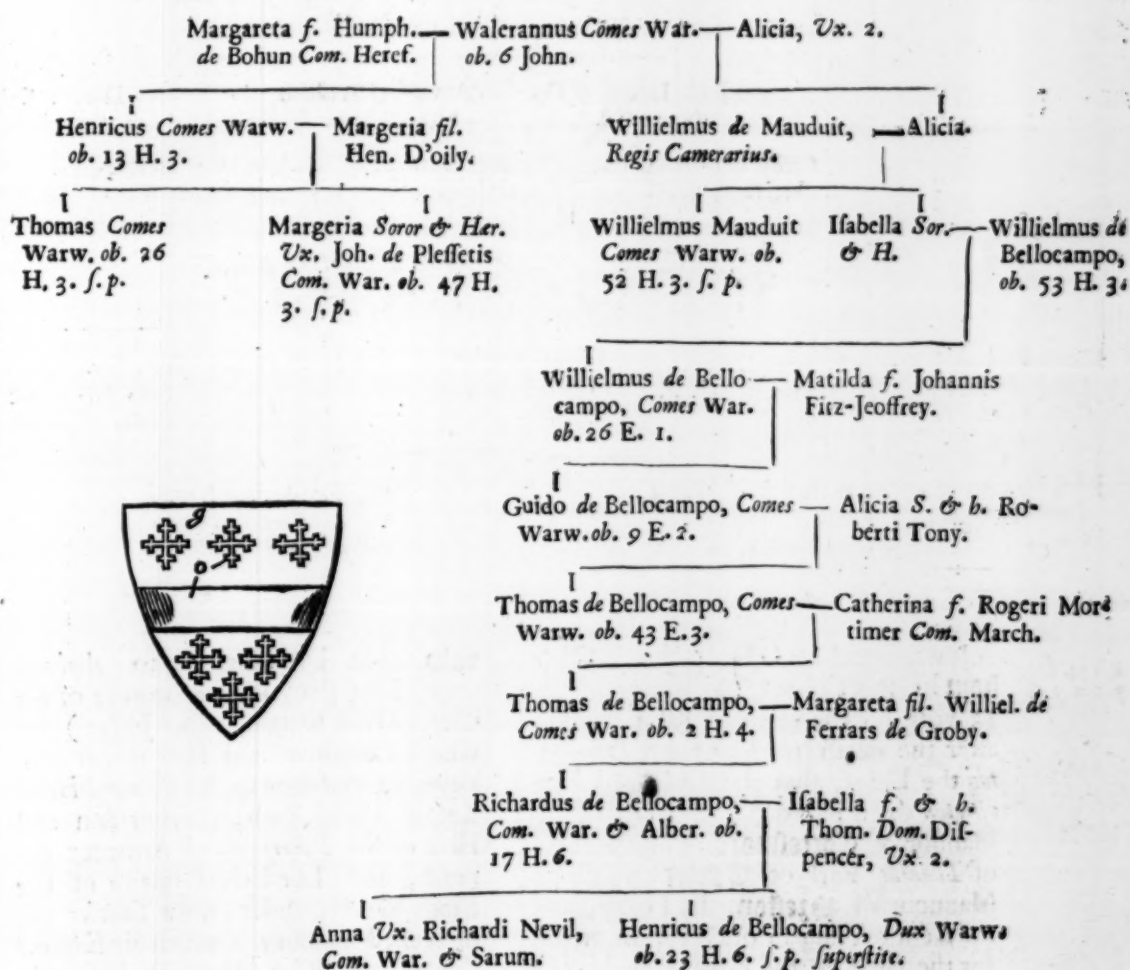 Margareta f. Humph. de Bohun Com. Heref.
Walerannus Comes War. ob. 6 John.
Alicia, Ux. 2.
Henricus Comes Warw. ob. 13 H. 3.
Margeria fil. Hen. D'oily.
Willielmus de Mauduit, Regis Camerarius.
Alicia.
Thomas Comes
Warw. ob. 26
H. 3. ſ. p.
Margeria Soror & Hær.
Ux. Joh. de Pleſſetis
Com. War. ob. 47 H.
3. ſ. p.
Willielmus Mauduit
Comes Warw. ob.
52 H. 3. ſ. p.
Iſabella Sor.
& H.
Willielmus de
Bellocampo,
ob. 53 H. 3.
Willielmus de Bello
campo, Comes War.
ob. 26 E. 1.
Matilda f. Johannis
Fitz-Jeoffrey.
Guido de Bellocampo, Comes
Warw. ob. 9 E. 2.
Alicia S. & h. Ro-
berti Tony.
g
o
Thomas de Bellocampo, Comes
Warw. ob. 43 E. 3.
Catherina f. Rogeri Mor
timer Com. March.
Thomas de Bellocampo,
Comes War. ob. 2 H. 4.
Margareta fil. Williel. de
Ferrars de Groby.
Richardus de Bellocampo,
Com. War. & Alber. ob.
17 H. 6.
Iſabella f. & h.
Thom. Dom. Diſ-
pencer, Ux 2.
Anna Ux. Richardi Nevil,
Com. War. & Sarum.
Henricus de Bellocampo, Dux Warw.
ob. 23 H. 6. ſ. p. ſuperſtite.